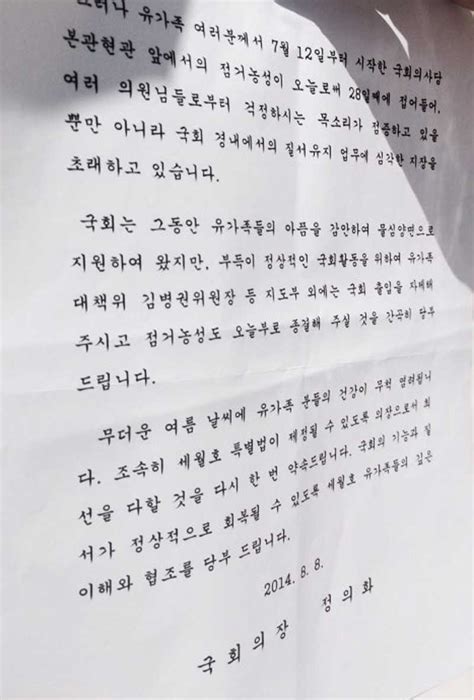 그러나 유가족 여러분께서 7월 12일부터 시작한 국회의사당
본관현관 앞에서의 점거농성이 오늘로써 28일째에 접어들어,
여러 의원님들로부터 걱정하시는 목소리가 점증하고 있을
뿐만 아니라 국회 경내에서의 질서유지 업무에 심각한 지장을
초래하고 있습니다.
국회는 그동안 유가족들의 아픔을 감안하여 물심양면으로
지원하여 왔지만, 부득이 정상적인 국회활동을 위하여 유가족
대책위 김병권위원장 등 지도부 외에는 국회 출입을 자제해
주시고 점거농성도 오늘부로 종결해 주실 것을 간곡히 당부
드립니다.
무더운 여름 날씨에 유가족 분들의 건강이 무척 염려됩니
다. 조속히 세월호 특별법이 제정될 수 있도록 의장으로서 최
선을 다할 것을 다시 한 번 약속드립니다. 국회의 기능과 질
서가 정상적으로 회복될 수 있도록 세월호 유가족들의 깊은
이해와 협조를 당부 드립니다.
2014. 8. 8.
국 회 의 장 정 의 화